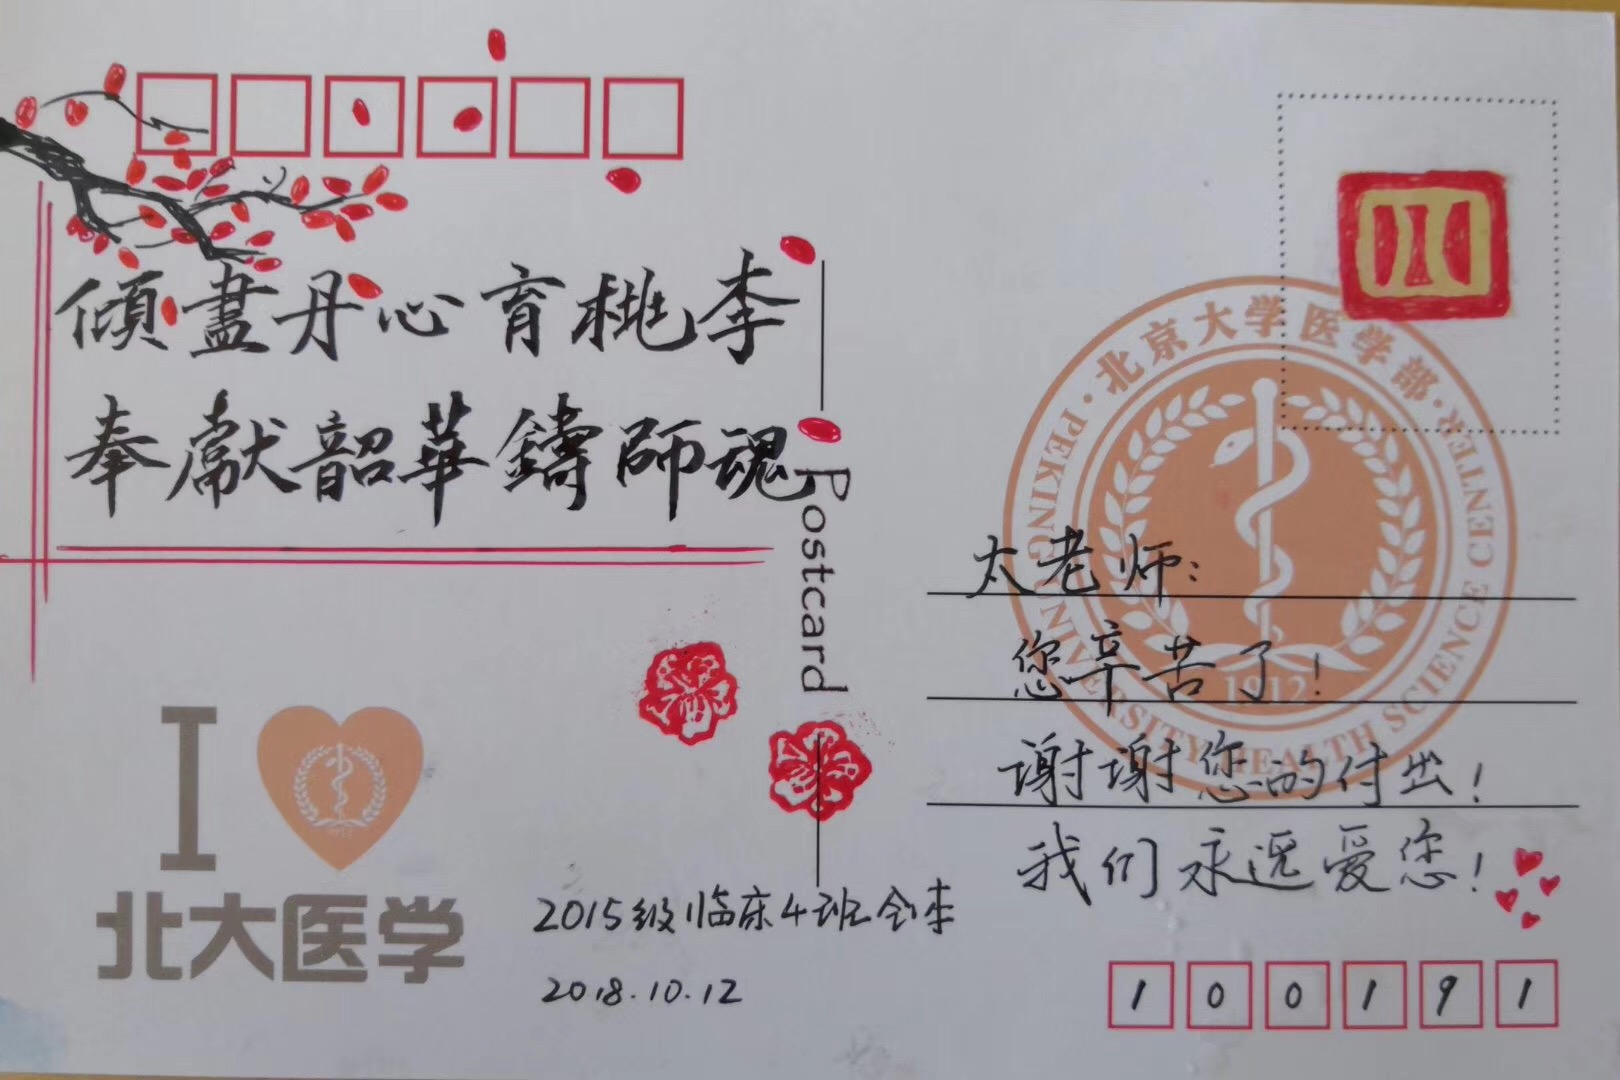 傾盡丹心育桃李
奉獻韶華鑄師魂
Postcard
北京大学医学部
PEKING UNIVERSITY HEALTH SCIENCE CENTER
1912
太老师:
您辛苦了!
谢谢您的付出!
我们永远爱您!
I
北大医学
2015级临床4班全体
2018.10.12
1 0 0 1 9 1